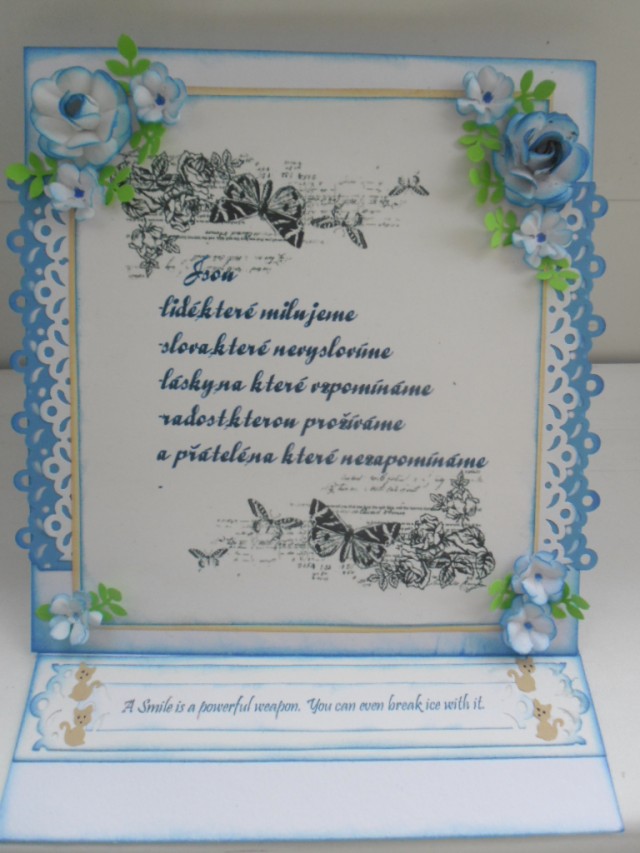 Jsou
lidé,které milujeme
slova,které nevyslovíme
lásky,na které vzpomínáme
radost,kterou prožíváme
a přátelé,na které nezapomínáme
A Smile is a powerful weapon. You can even break ice with it.